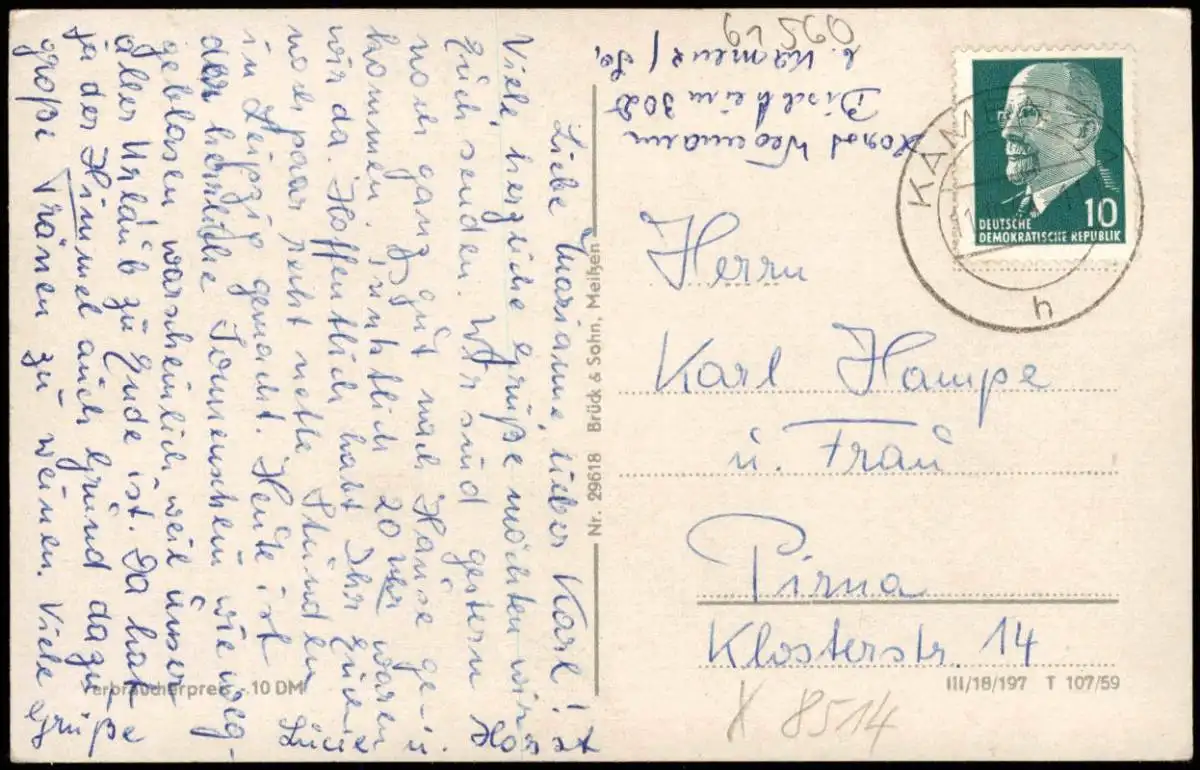 61 560
Horst Wegmann
Bischheim 30
b. Kamenz / Sa.
Liebe Marianne, lieber Karl!
Viele herzliche Grüße möchten wir
Euch senden. Wir sind gestern
noch ganz gut nach Hause ge-
kommen. Pünktlich 20 Uhr waren
wir da. Hoffentlich habt Ihr Euch
noch paar recht nette Stunden
in Leipzig gemacht. Heute ist
der herrliche Sonnenschein wie weg-
geblasen warscheinlich weil unser
aller Urlaub zu Ende ist. Da hat
ja der Himmel auch Grund dazu
große Tränen zu weinen. Viele Grüße
Horst u.
Nr. 29618 Brück & Sohn, Meißen
Verbraucherpreis -.10 DM
KAMENZ
h
10
DEUTSCHE
DEMOKRATISCHE REPUBLIK
Herrn
Karl Hampe
u. Frau
Pirna
Klosterstr. 14
III/18/197 T 107/59
X 8514